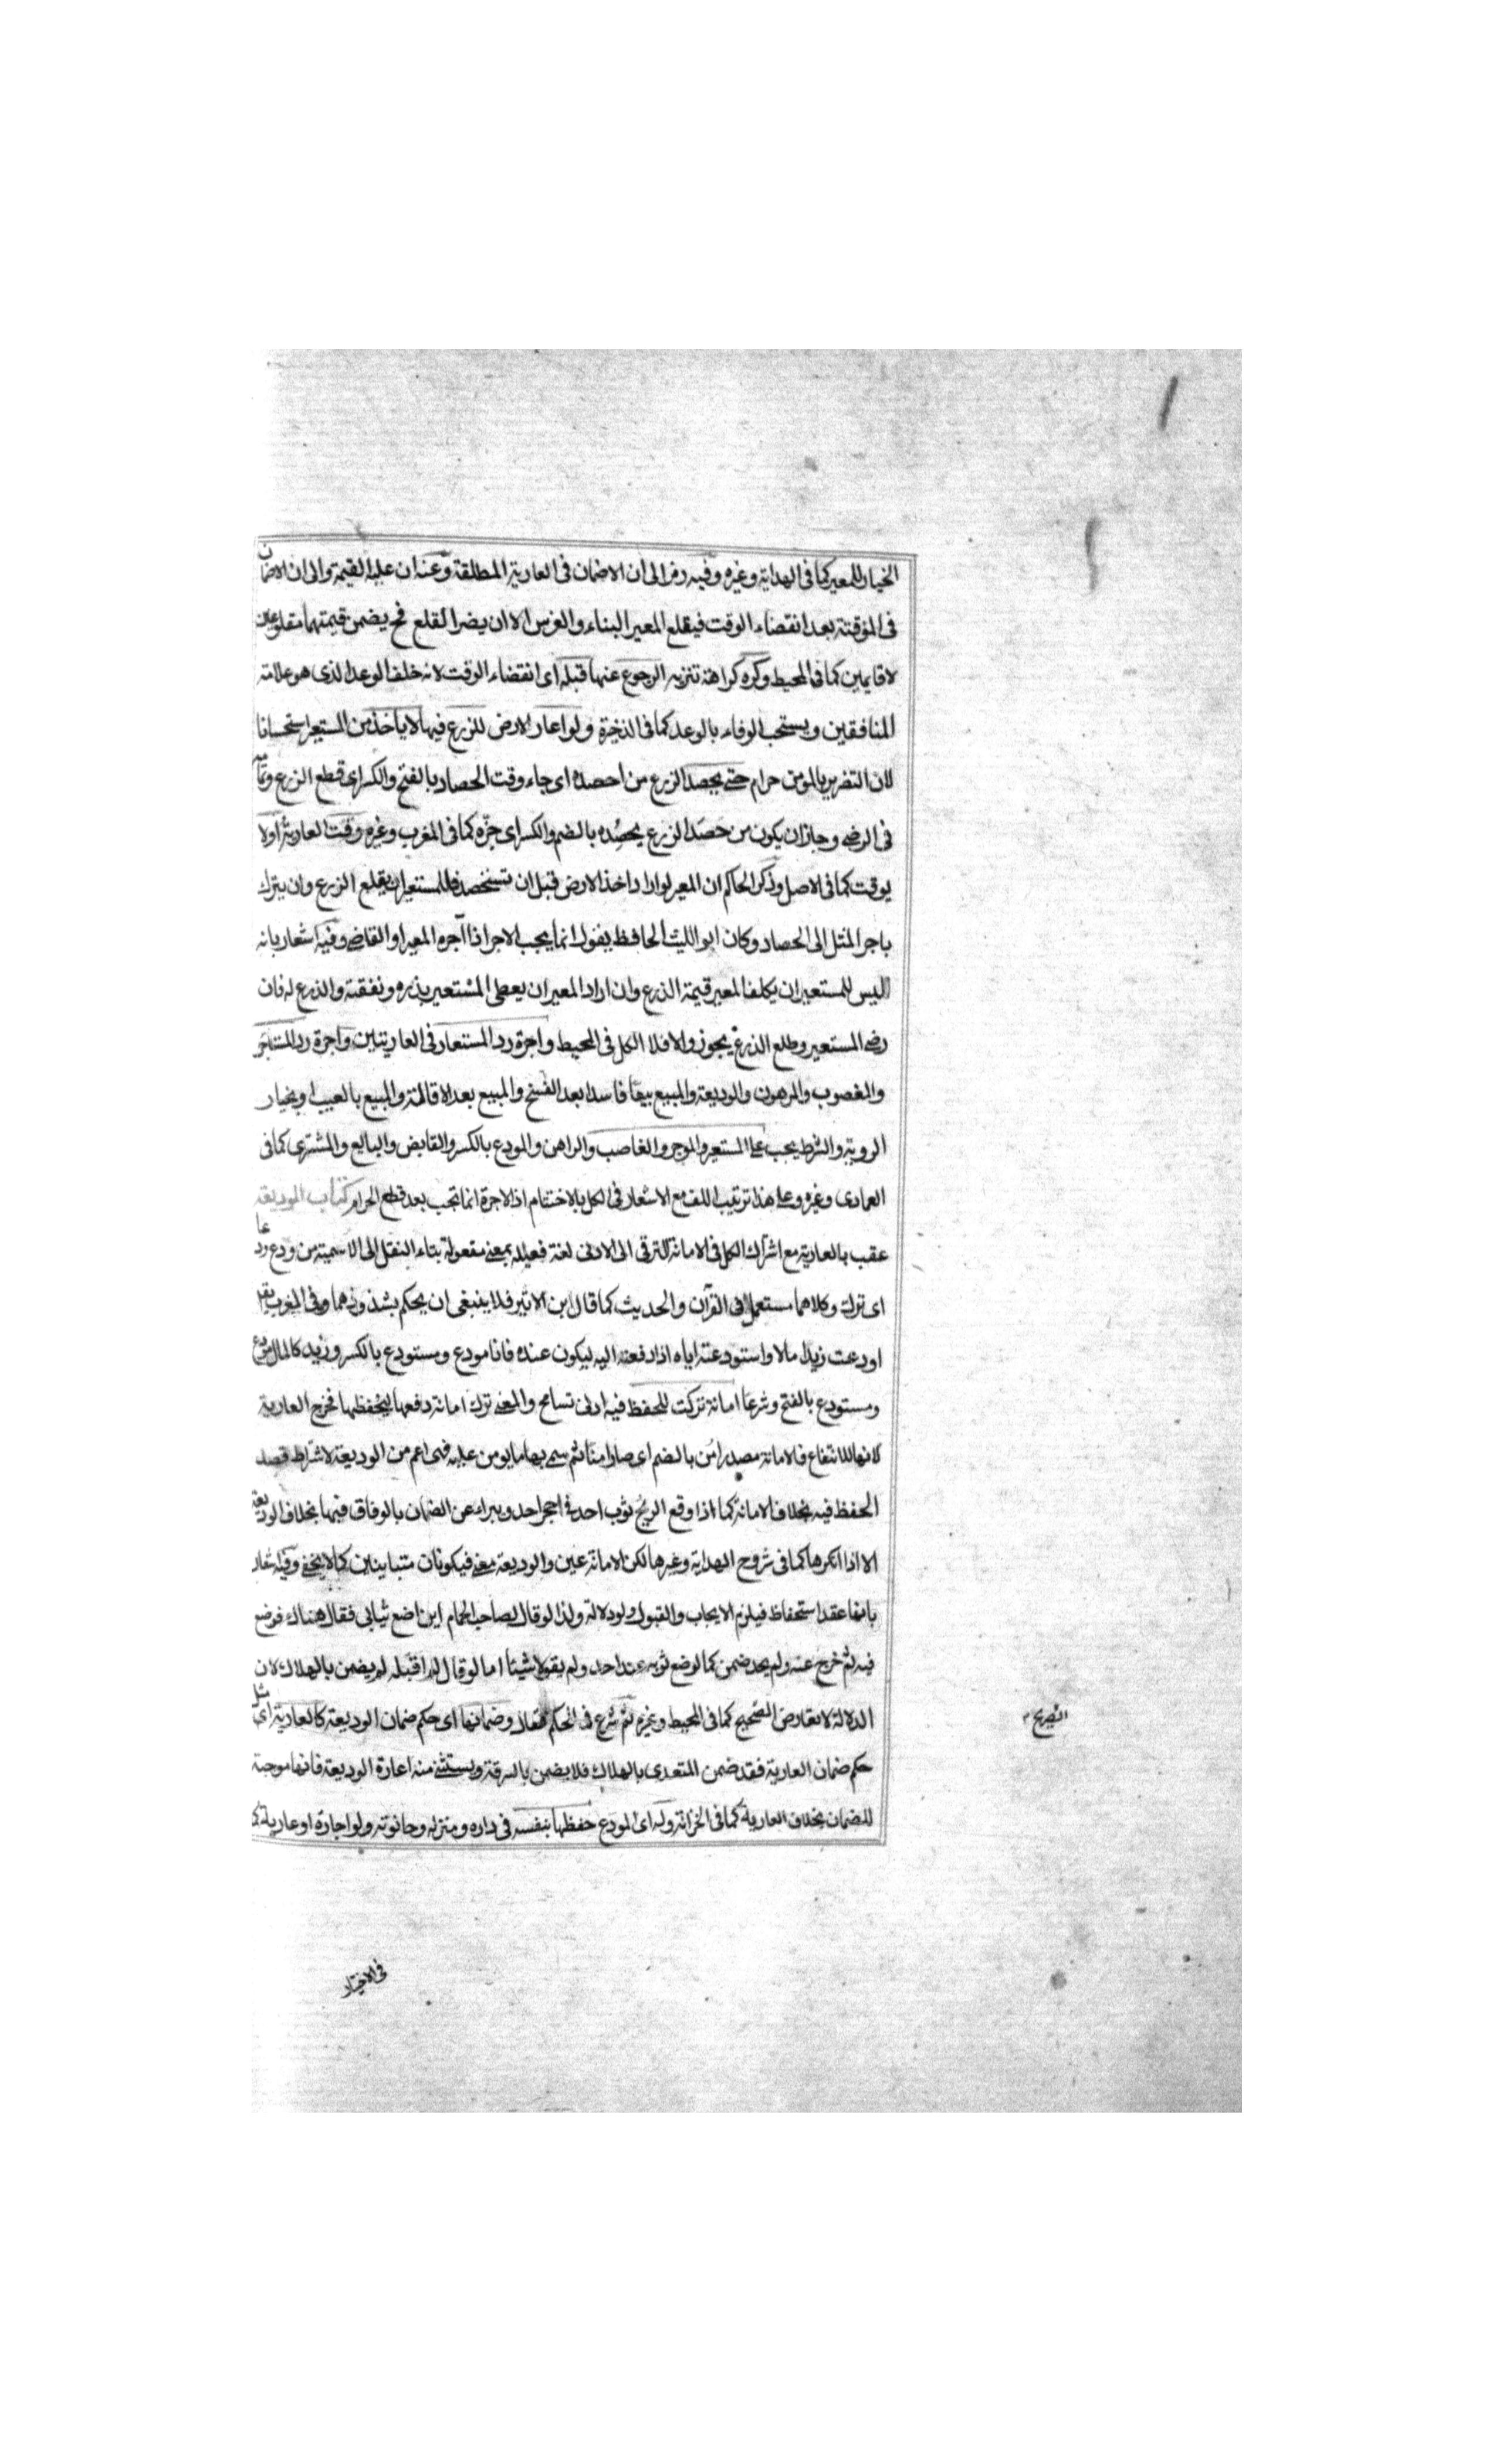 الخيار للمعير كما فى الهداية وغيره وفيه رمز الى ان لا ضمان فى العارية المطلقة وعنه ان عليه القيمة والى ان لا ضمان
فى الموقتة بعد انقضاء الوقت فيقلع المعير البناء والغرس الا ان يضر القلع فح يضمن قيمتهما مقلوعين
لا قايمين كما فى المحيط وكره كراهة تنزيه الرجوع عنها قبله اى انقضاء الوقت لانه خلف الوعد الذى هو علامة
المنافقين ويستحب الوفاء بالوعد كما فى الذخيرة ولو اعار الارض للزرع فيها لا ياخذ من المستعير استحسانا
لان التغرير بالمومن حرام حتى يحصد الزرع من احصده اى جاء وقت الحصاد بالفتح والكسر اى قطع الزرع وتمامه
فى الرضى وجاز ان يكون من حصد الزرع يحصُده بالضم والكسر اى جزّه كما فى المغرب وغيره وقت العارية اولا
يوقت كما فى الاصل وذكر الحاكم ان المعير لو اراد اخذ الارض قبل ان تستحصد فللمستعير ان يقلع الزرع وان يترك
باجر المثل الى الحصاد وكان ابو الليث الحافظ يقول انما يجب الاجر اذا آجره المعير او القاضى وفيه اشعار بانه
ليس للمستعير ان يكلف المعير قيمة الزرع وان اراد المعير ان يعطى المستعير بذره ونفقته والذرع له فان
رضى المستعير وطلع الذرع يجوز والا فلا الكل فى المحيط واجرة رد المستعار فى العاريتين واجرة رد المستاجر
والمغصوب والمرهون والوديعة والمبيع بيعًا فاسدا بعد الفسخ والمبيع بعد الاقالة والمبيع بالعيب او بخيار
الروية والشرط يجب على المستعير والموجر والغاصب والراهن والمودع بالكسر والقابض والبايع والمشترى كما فى
العمادى وغيره وعلى هذا ترتيب اللف مع الاشعار فى الكل بالاختتام اذ الاجرة انما تجب بعد قطع الحرام كتاب الوديعة
عقب بالعارية مع اشتراك الكل فى الامانة للترقى الى الادنى لغة فعيلة بمعنى مفعولة بتاء النقل الى الاسمية من ودع ودعا
اى ترك وكلاهما مستعمل فى القرآن والحديث كما قال ابن الاثير فلا ينبغى ان يحكم بشذوذهما وفى المغرب يقال
اودعت زيدا مالا واستودعته اياه اذا دفعته اليه ليكون عنده فانا مودع ومستودع بالكسر وزيد كالمال مودع
ومستودع بالفتح وشرعًا امانة تركت للحفظ فيه ادنى تسامح والمعنى ترك امانة دفعها ليحفظها فخرج العارية
لانها للانتفاع فالامانة مصدر امُن بالضم اى صار امينًا ثم سمى بها ما يومن عليه فهى اعم من الوديعة لاشتراط قصد
الحفظ فيه بخلاف الامانة كما اذا وقع الريح ثوب احد فى حجر احد ويبراء عن الضمان بالوفاق فيها بخلاف الوديعة
الا اذا انكرها كما فى شروح الهداية وغيرها لكن الامانة عين والوديعة معنى فيكونان متباينين كما لا يخفى وفيه اشعار
بانها عقد استحفاظ فيلزم الايجاب والقبول ولو دلالة ولذا لو قال لصاحب الحمام اين اضع ثيابى فقال هناك فوضع
فيه ثم خرج عنه ولم يجد ضمن كما لو وضع ثوبه عند احد ولم يقولا شيئا اما لو قال لم اقبله لم يضمن بالهلاك لان
الدلالة لا تعارض الصريح كما فى المحيط وغيره ثم شرع فى الحكم فقال وضمانها اى حكم ضمان الوديعة كالعارية اى مثل
حكم ضمان العارية فقد ضمن المتعدى بالهلاك فلا يضمن بالسرقة ويستثنى منه اعارة الوديعة فانها موجبة
للضمان بخلاف العارية كما فى الخزانة وله اى المودع حفظها بنفسه فى داره ومنزله وحانوته ولو اجارة او عارية كما
الصريح
فى الاختيار